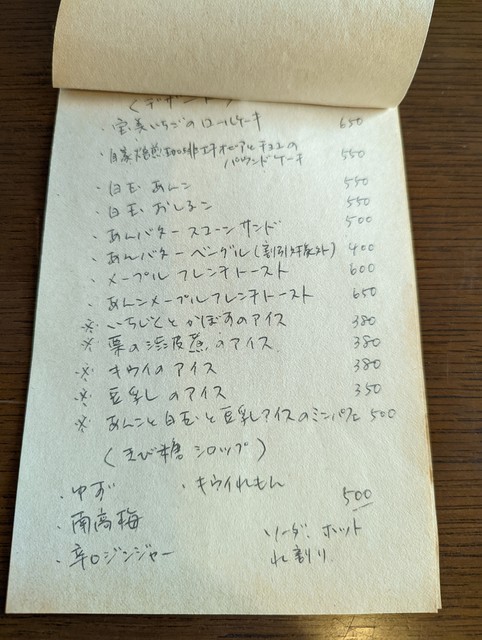 (デザート)
・宝美いちごのロールケーキ 650
・自家焙煎珈琲エチオピアとチョコの
パウンドケーキ 550
・白玉あんこ 550
・白玉おしるこ 550
・あんバタースコーンサンド 500
・あんバターベーグル(割引対象外) 400
・メープルフレンチトースト 600
・あんこメープルフレンチトースト 650
※いちじくとかぼすのアイス 380
※栗の渋皮煮のアイス 380
※キウイのアイス 380
※豆乳のアイス 350
※あんこと白玉と豆乳アイスのミニパフェ 500
(きび糖シロップ)
・ゆず ・キウイれもん
500
・南高梅
ソーダ、ホット
・辛口ジンジャー
水割り